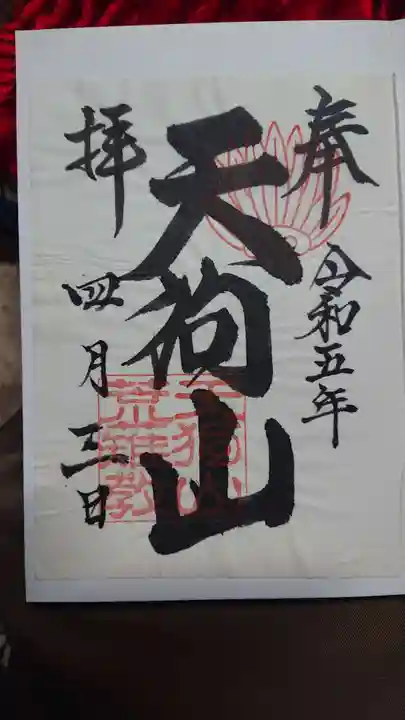 奉
令和五年
天狗山
拝
四月三日
天狗山
荒雄教